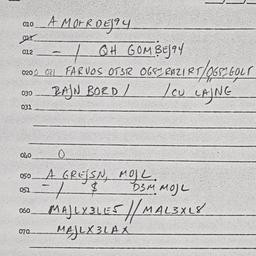 010 A MOHRDEJ94
011
012 - / QH GOMBEJ94
020 021 FARVOS OT3R OG5JRAZIRT/OG5JGOLT
030 BAJN BORD / /CU LAJNE
031
040 O
050 A GREJSN, MOJL.
051 - / $ D3M MOJL
060 MAJLX3LE5 // MAL3XL8
070 MAJLX3LAX